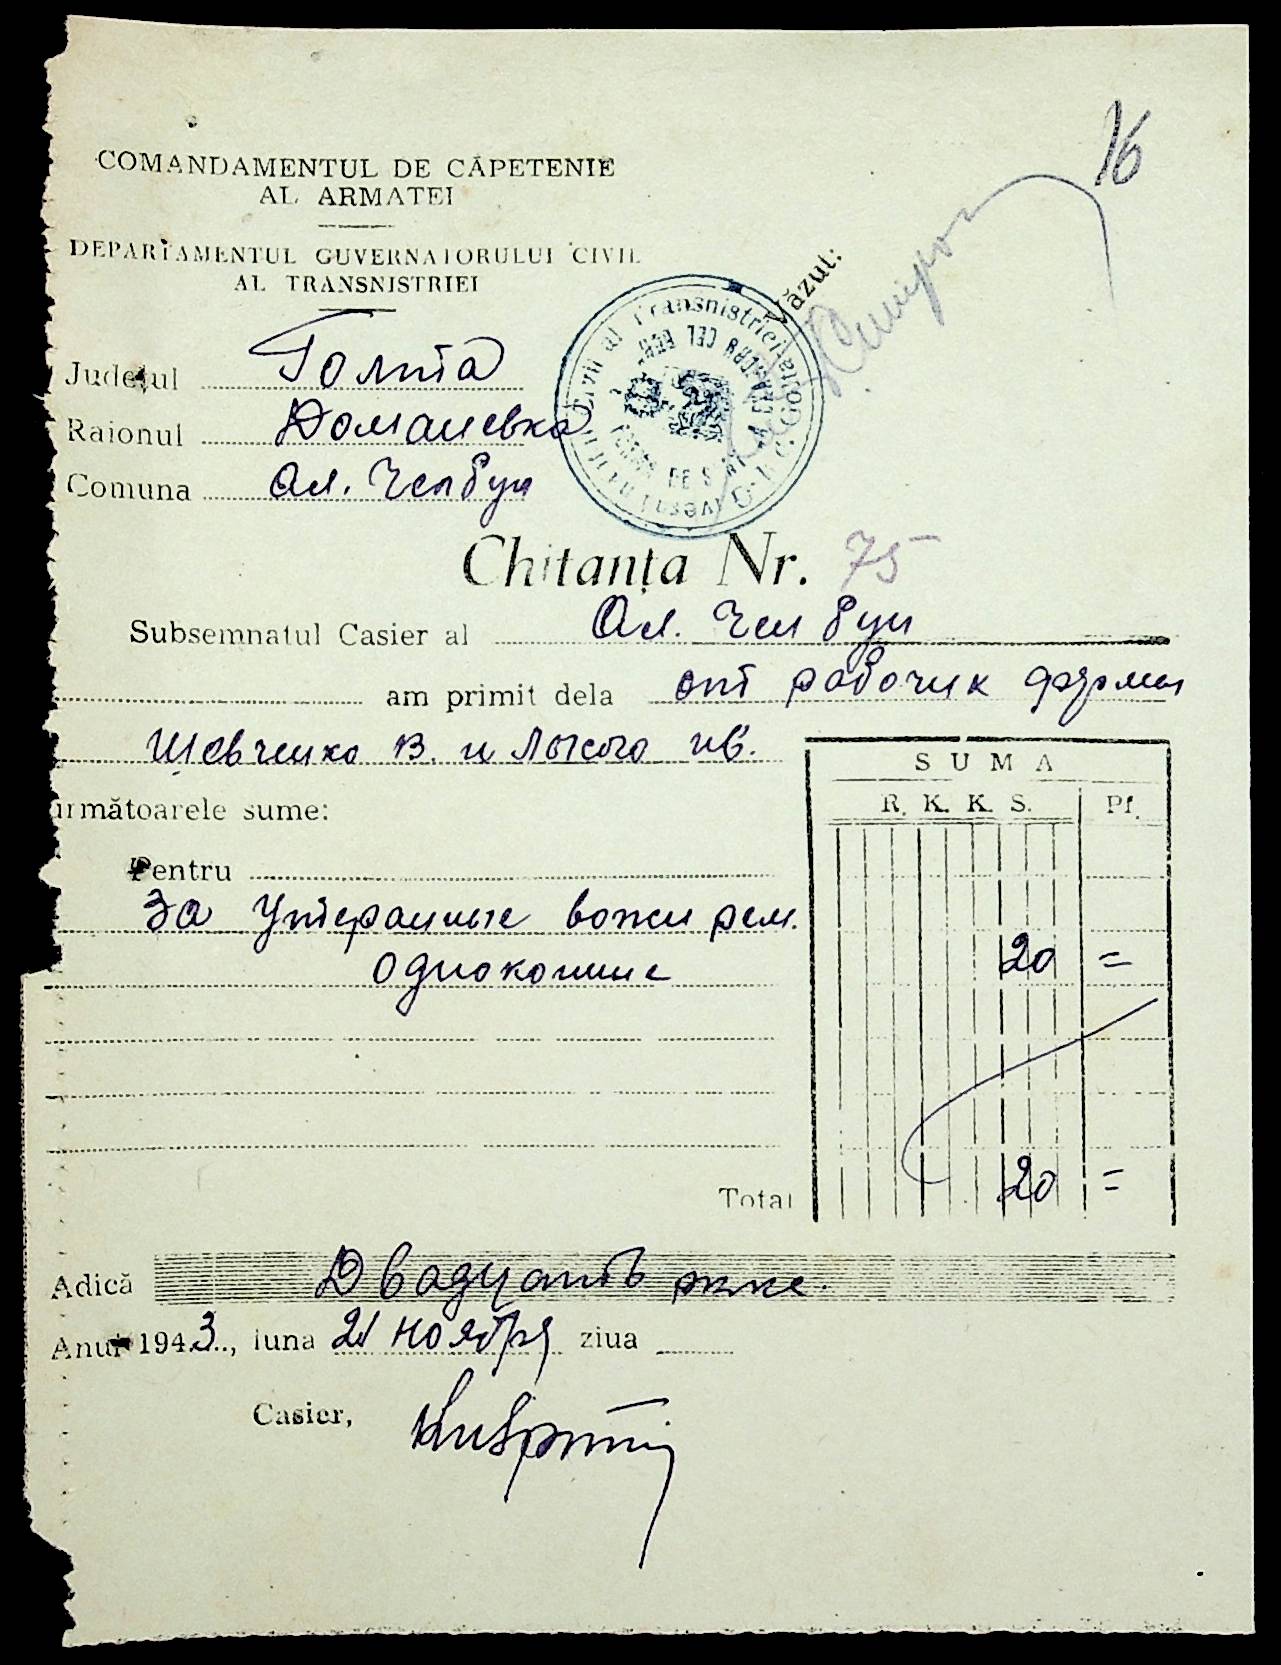 16
COMANDAMENTUL DE CĂPETENIE
AL ARMATEI
DEPARTAMENTUL GUVERNATORULUI CIVIL
AL TRANSNISTRIEI
Văzut:
Județul Голта
Raionul Доманевка
Comuna Ал. Челбун
Chitanța Nr. 75
Subsemnatul Casier al Ал. Челбун
am primit dela от рабочих фермы
Шевченко В. и Лысого Ив.
următoarele sume:
SUMA
R. K. K. S. Pf.
Pentru
За утерянные вожжи рем.
одноконные 20 =
Total 20 =
Adică Двадцать ркке.
Anul 1943, luna 21 ноября ziua
Casier,